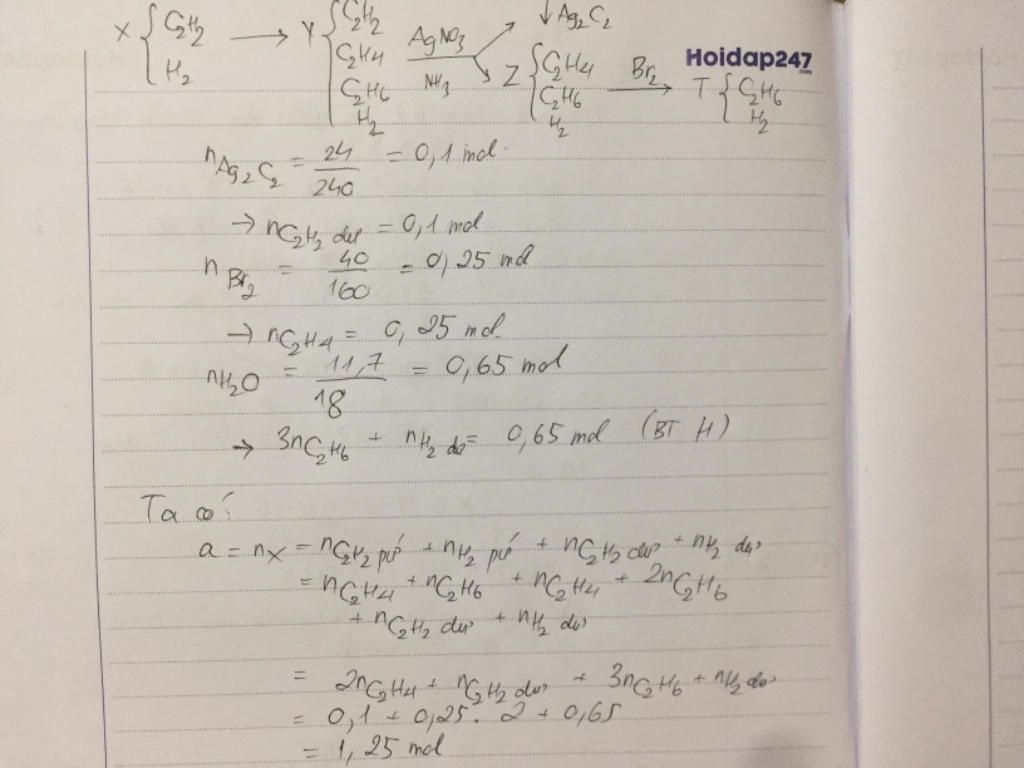 X { C2H2 → Y { C2H2 AgNO3 ↓ Ag2C2
H2 C2H4 NH3 Z { C2H4 Br2 → T { C2H6
C2H6 C2H6 H2
H2 H2
Hoidap247
.com
nAg2C2 = 24/240 = 0,1 mol
→ nC2H2 dư = 0,1 mol
nBr2 = 40/160 = 0,25 mol
→ nC2H4 = 0,25 mol
nH2O = 11,7/18 = 0,65 mol
→ 3nC2H6 + nH2 dư = 0,65 mol (BT H)
Ta có:
a = nX = nC2H2 pứ + nH2 pứ + nC2H2 dư + nH2 dư
= nC2H4 + nC2H6 + nC2H4 + 2nC2H6
+ nC2H2 dư + nH2 dư
= 2nC2H4 + nC2H2 dư + 3nC2H6 + nH2 dư
= 0,1 + 0,25. 2 + 0,65
= 1,25 mol